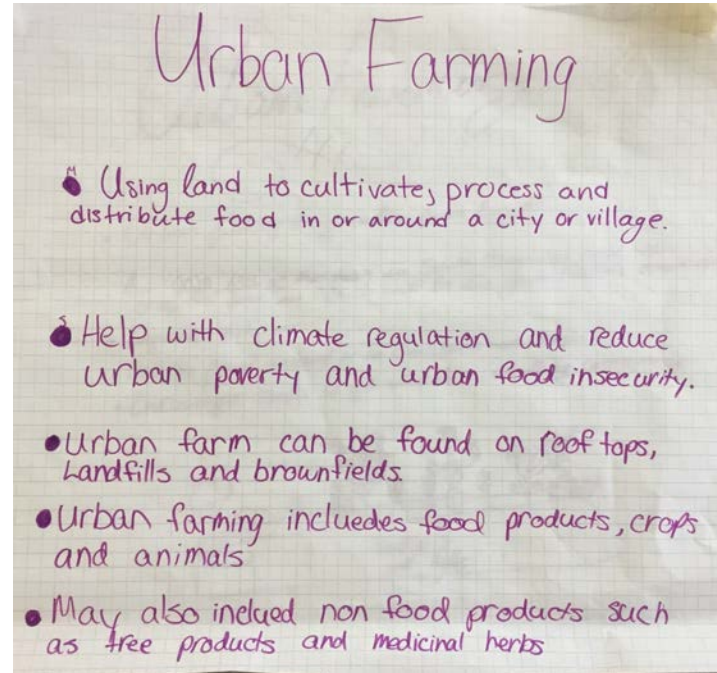 Urban Farming
Using land to cultivate, process and
distribute food in or around a city or village.
Help with climate regulation and reduce
urban poverty and urban food insecurity.
Urban farm can be found on roof tops,
Landfills and brownfields.
Urban farming incluedes food products, crops
and animals
May also inclued non food products such
as tree products and medicinal herbs